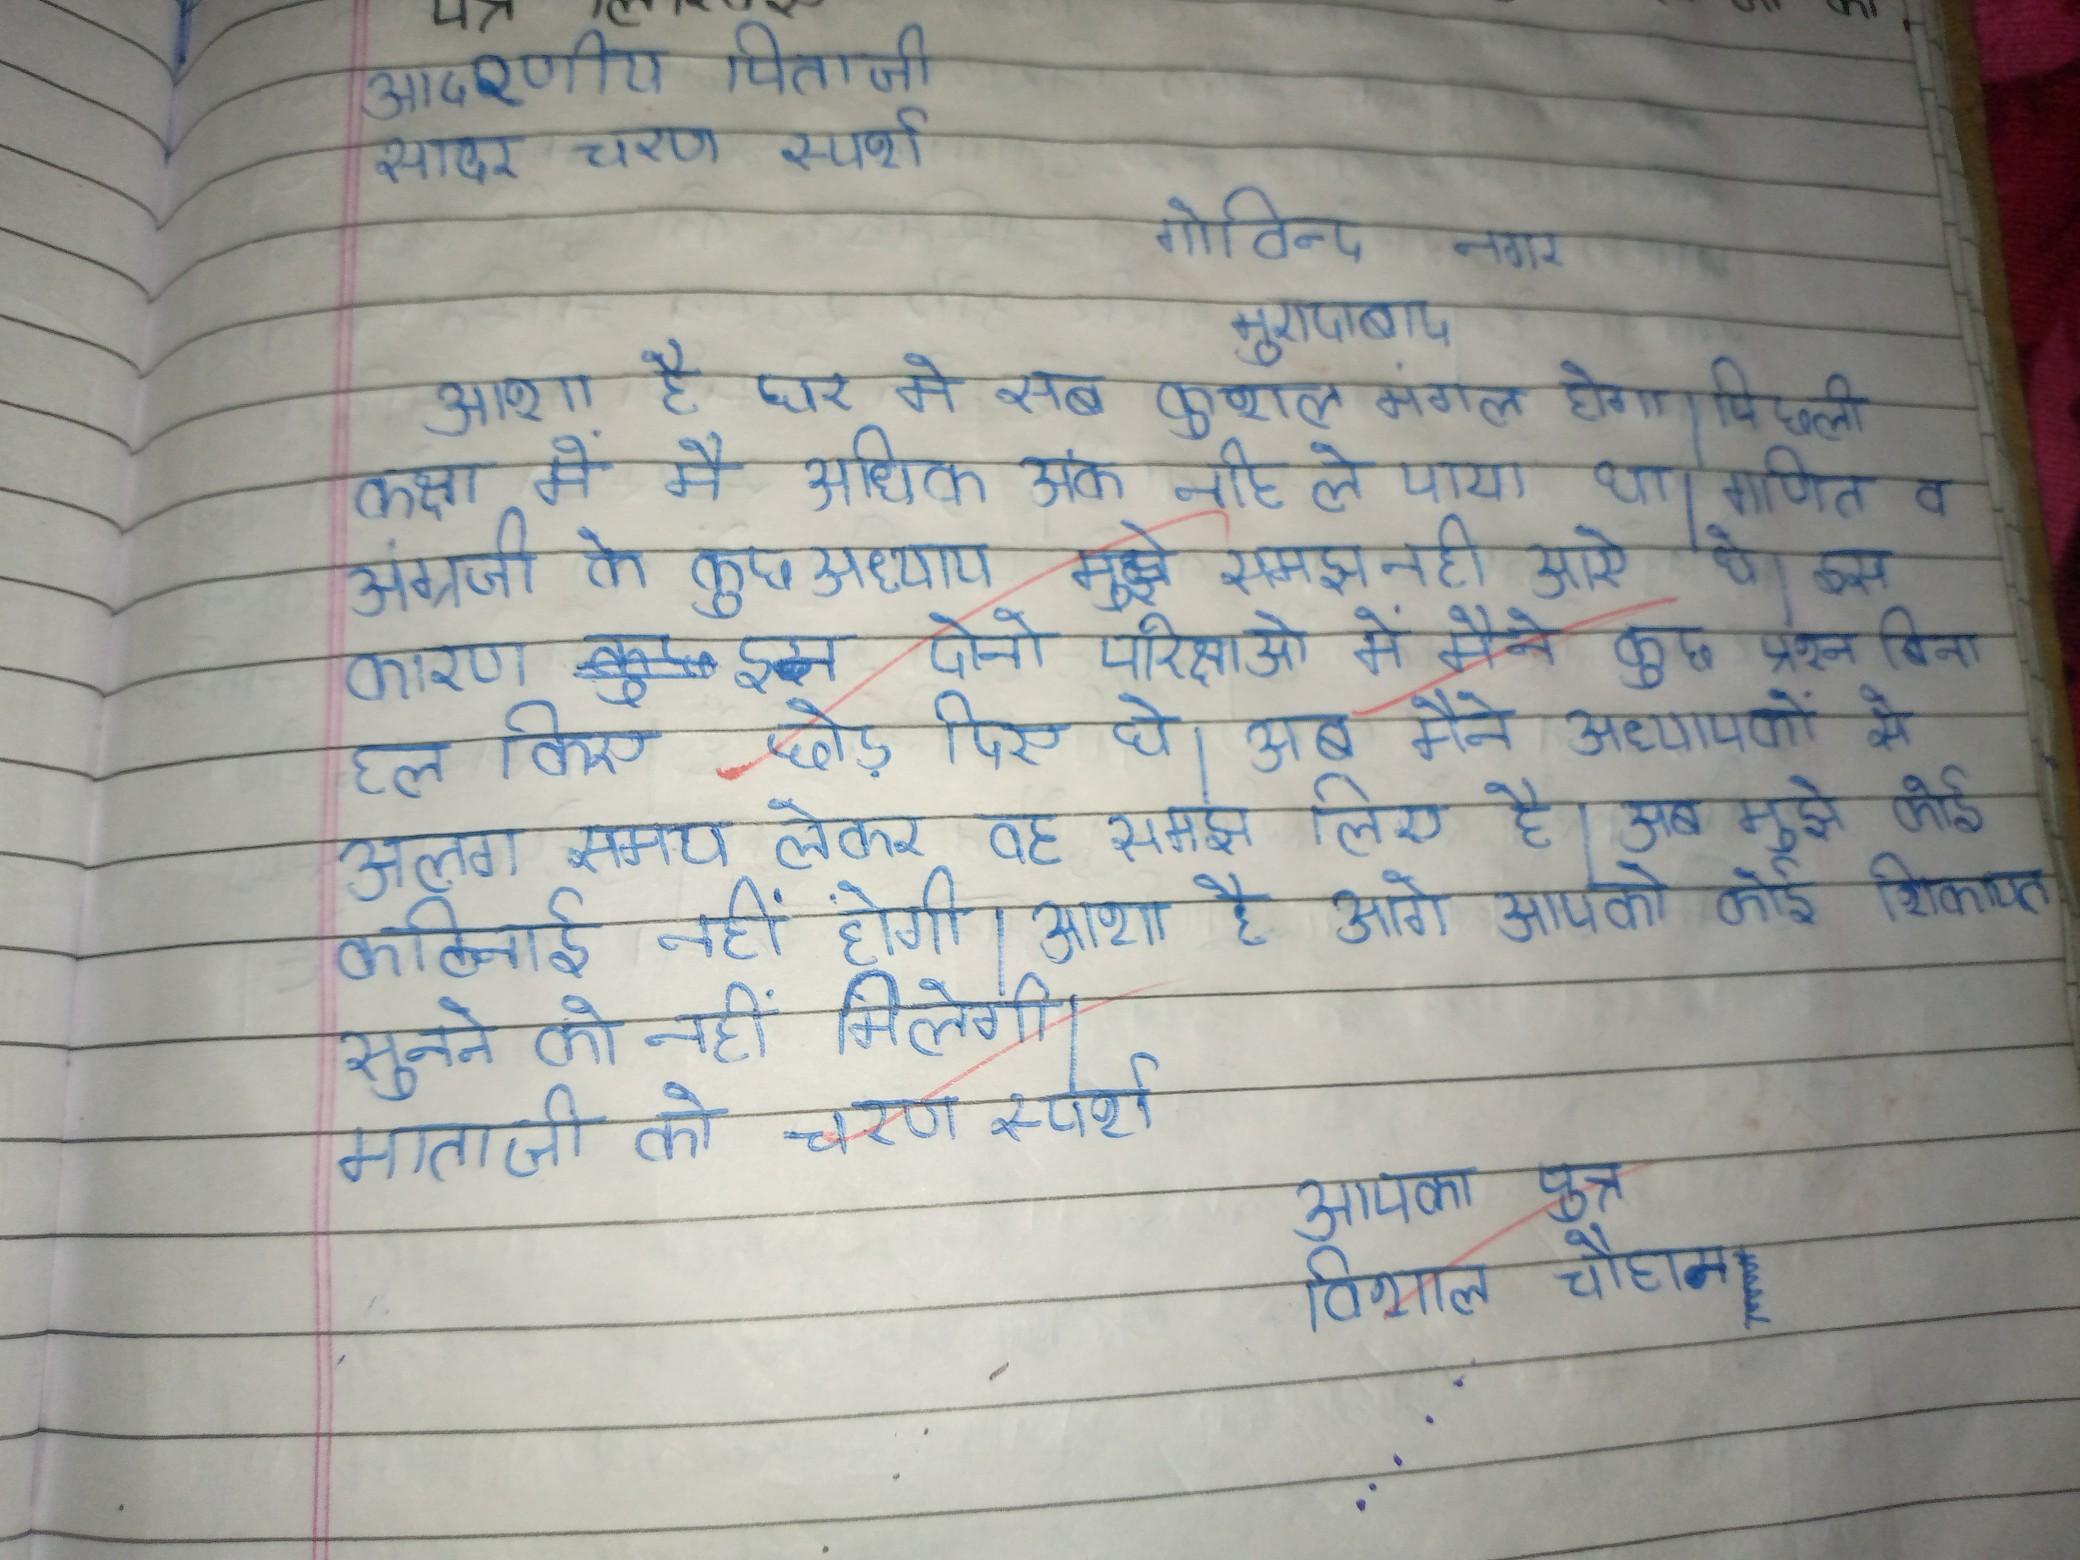 पत्र
आदरणीय पिताजी
सादर चरण स्पर्श
गोविन्द नगर
मुरादाबाद
आशा है घर मे सब कुशल मंगल होगा। पिछली
कक्षा में मै अधिक अंक नहि ले पाया था। गणित व
अंग्रजी के कुछ अध्याय मुझे समझ नही आऐ थे। इस
कारण इन दोनो परिक्षाओ में मैने कुछ प्रश्न बिना
हल किए छोड़ दिए थे। अब मैने अध्यापकों से
अलग समय लेकर वह समझ लिए है। अब मुझे कोई
कठिनाई नहीं होगी। आशा है आगे आपको कोई शिकायत
सुनने को नहीं मिलेगी।
माताजी को चरण स्पर्श
आपका पुत्र
विशाल चौहान